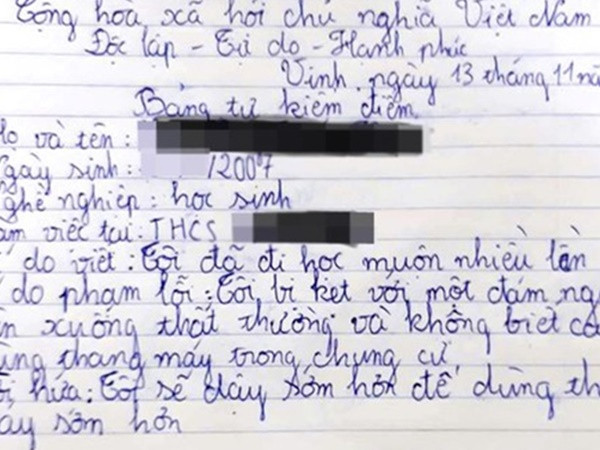 Cộng hòa xã hội chủ nghĩa Việt Nam
Độc lập - Tự do - Hạnh phúc
Vinh, ngày 13 tháng 11 nă
Bảng tự kiểm điểm
ọ và tên :
gày sinh : /2007
ghề nghiệp : học sinh
àm việc tại : THCS
do viết : Tôi đã đi học muộn nhiều lần
do phạm lỗi : Tôi bị kẹt với một đám ng
ên xuống thất thường và không biết cá
ùng thang máy trong chung cư
ôi hứa : Tôi sẽ dậy sớm hơn để dùng th
áy sớm hơn